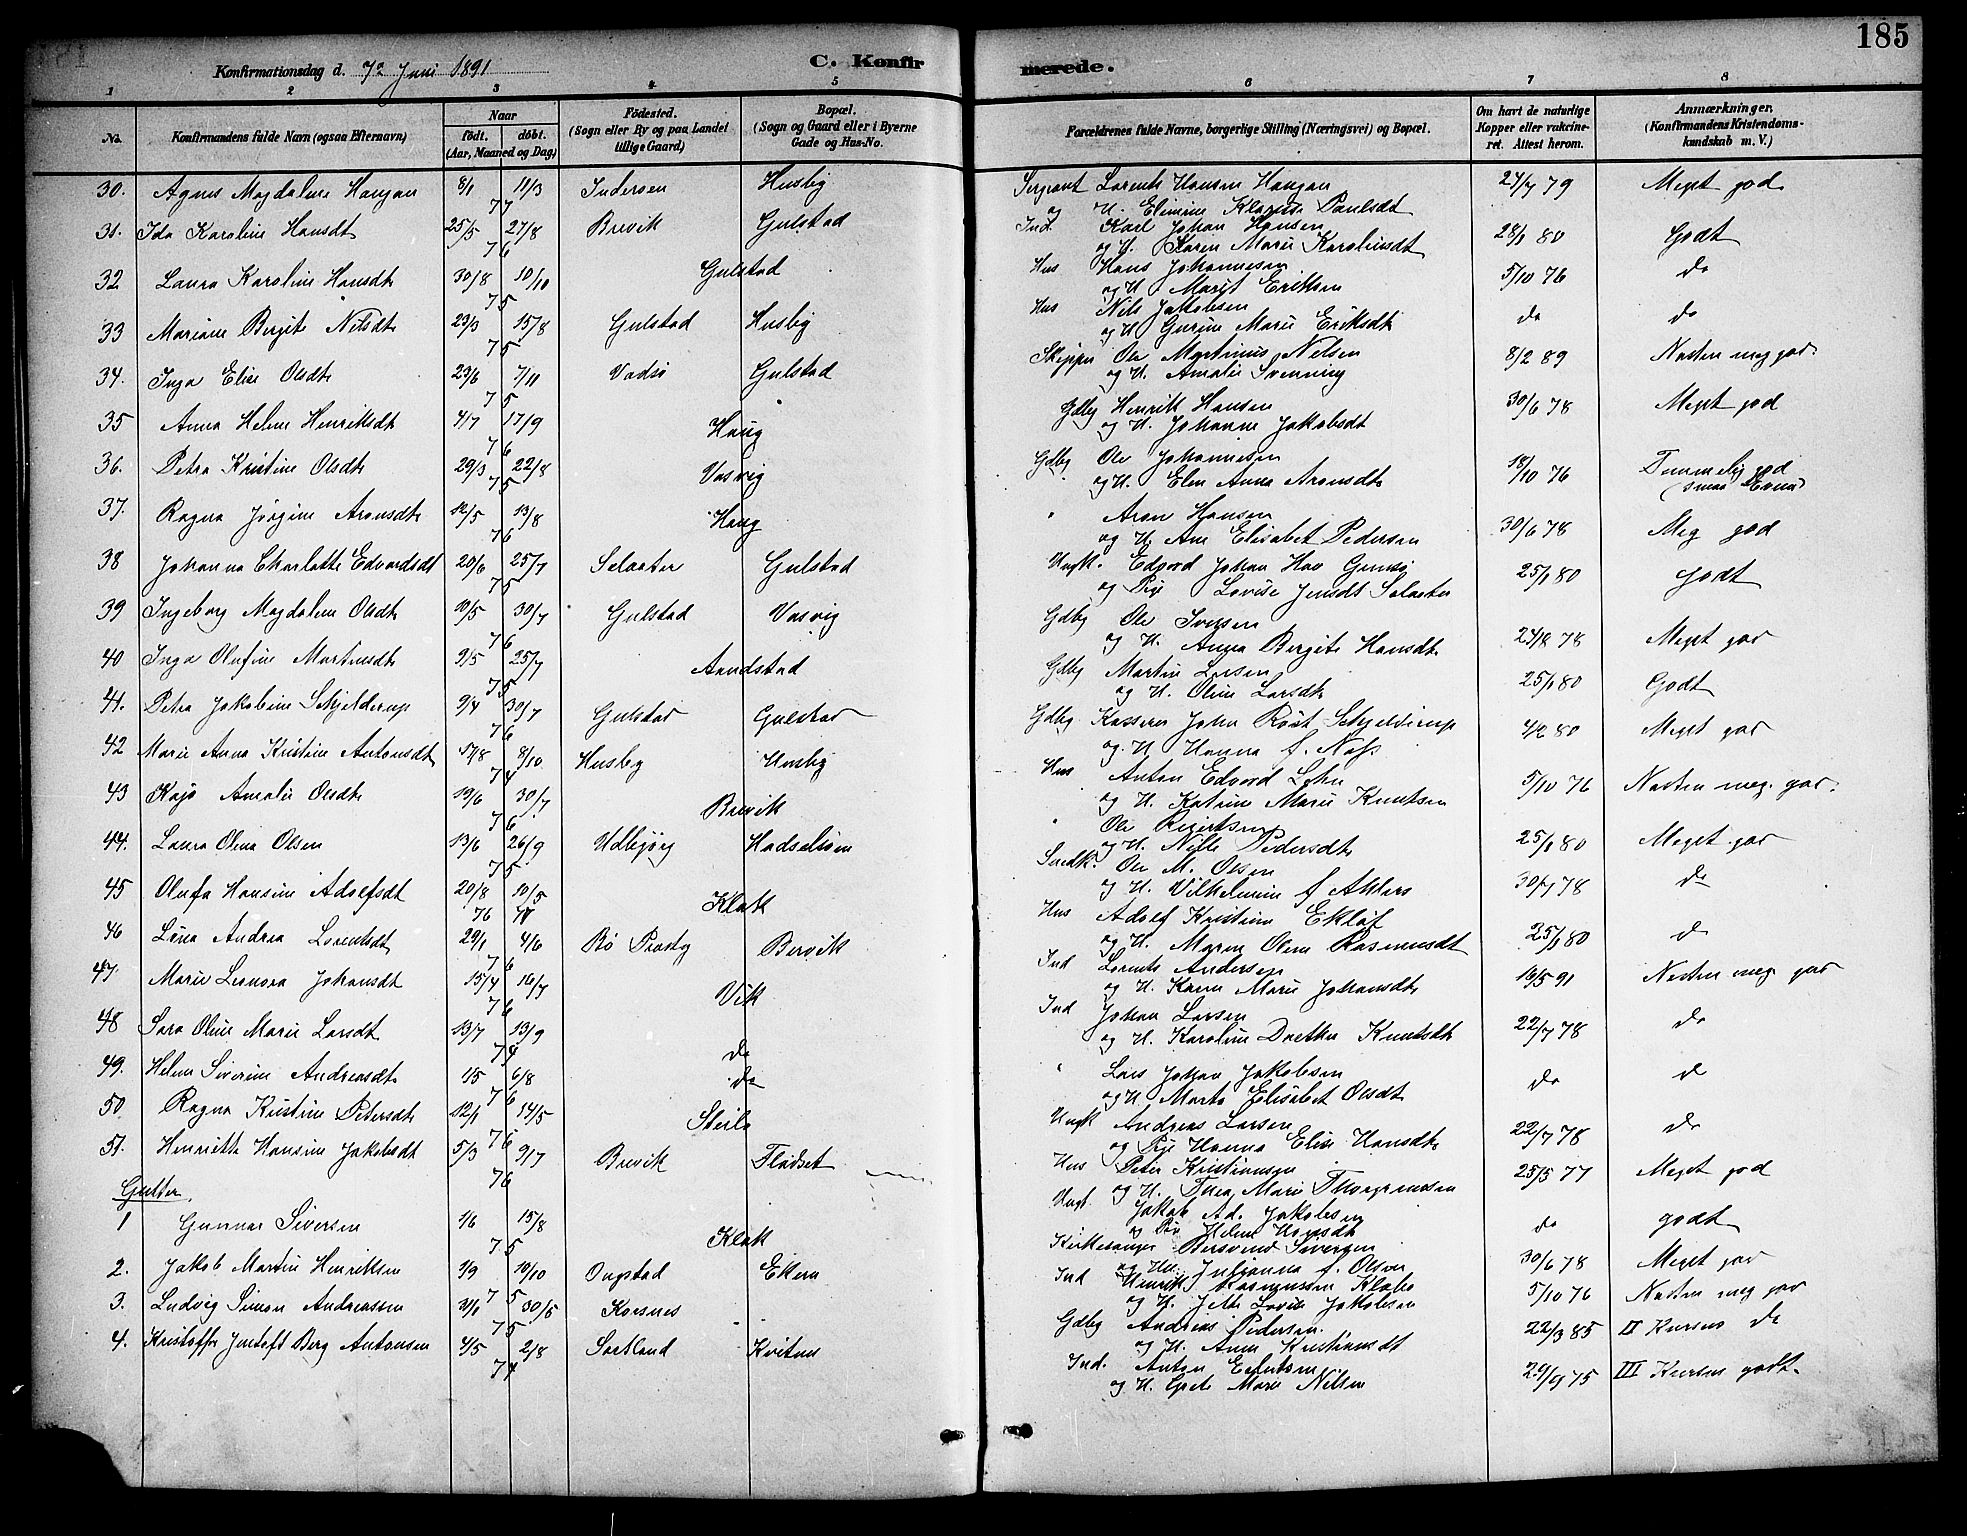 185
Konfirmationsdag d. 7de Juni 1891
C. Konfirmerede.
1 2 3 4 5 6 7 8
No.
Konfirmandens fulde Navn (ogsaa Efternavn)
Naar
født. døbt.
(Aar, Maaned og Dag)
Fødested.
(Sogn eller By og paa Landet
tillige Gaard)
Bopæl.
(Sogn og Gaard eller i Byerne
Gade og Hus-No.
Forældrenes fulde Navne, borgerlige Stilling (Næringsvei) og Bopæl.
Om havt de naturlige
Kopper eller vakcineret. Attest herom.
Anmærkninger.
(Konfirmandens Kristendomskundskab m. V.)
30. Agnes Magdalene Haugan 8/1 11/3 77 Inderøen Husby Sergeant Lorents Hansen Haugan 24/7 79 Meget god
og H. Elimine Klarise Paulsdt
31. Ida Karoline Hansdt 25/5 27/8 76 Brevik Gulstad Ind. Karl Johan Hansen 28/1 80 Godt
og H. Karen Marie Karolinsdt
32 Laura Karoline Hansdt 30/8 10/10 75 Gulstad Hus Hans Johannesen 5/10 76 do
og H. Marit Eriksen
33 Mariane Bergite Nilsdt 23/3 15/8 75 Gulstad Husby Hus Nils Jakobsen do do
og H. Gurine Marie Eriksdt
34. Inga Elise Olsdt 23/6 7/11 75 Vadsø Gulstad Skipper Ole Martinus Nelsen 8/2 89 Næsten meg god.
og H. Amalie Svenning
35 Anna Helene Henriksdt 4/7 17/9 76 Haug Gdbg Henrik Hansen 30/6 78 Meget god
og H. Johanne Jakobsdt
36. Petra Kristine Olsdt 29/3 22/8 75 Vasvig Gdbg Ole Johannesen 18/10 76 Temmelig god
og H. Elen Anna Aronsdt (smaa Evner)
37. Ragna Jørgine Aronsdt 12/5 13/8 76 Haug " Aron Hansen 30/6 78 Meg god
og H. Ane Elisabet Pedersen
38 Johanna Charlotte Edvardsdt 20/6 25/7 75 Selaater Gulstad Ungk. Edvard Johan Hav Gimsø 25/1 80 godt
og Pige Lovise Jensdt Selaater
39 Ingeborg Magdalene Olsdt 10/5 30/7 76 Gulstad Vasvig Gdbg Ole Iversen 24/8 78 Meget god
og H. Anna Bergite Hansdt
40 Inga Olufine Martinsdt 9/5 25/7 75 Aandstad Gdbg Martin Larsen 25/1 80 Godt
og H. Oline Larsdt
41. Petra Jakobine Schjelderup 9/4 30/7 76 Gulstad Gulstad Gdbg Kasserer John Røst Schjelderup 4/2 80 Meget god
og H. Hanna f. Næss
42 Marie Anna Kristine Antonsdt 17/8 8/10 74 Husby Husby Hus Anton Edvard Lehn 5/10 76 Næsten meg. god.
og H. Katrine Marie Knutsen
43 Kaja Amalie Olsdt 19/6 30/7 76 Brevik " Ole Reiertsen 25/1 80 Meget god
og H. Nille Pedersdt
44. Laura Olena Olsen 13/6 26/9 75 Udbjørg Hadseløen Snedk. Ole M. Olsen 30/7 78 do
og H. Vilhelmine f. Ahlers
45 Olufa Hansine Adolfsdt 20/8 76 10/5 77 Klak Hus Adolf Kristian Ekløf 25/1 80 do
og H. Maren Olene Rasmusdt
46 Lina Andrea Lorentsdt 29/1 4/6 76 Bø Prostg Bervik Ind Lorents Andersen 16/5 91 Næsten meg. god
og H. Karen Marie Johansdt
47. Marie Leonora Johansdt 15/4 16/7 76 Vik Ind Johan Larsen 22/7 78 do
og H. Karoline Dorthea Knutsdt
48 Sara Oline Marie Larsdt 13/7 13/9 74 do " Lars Johan Jakobsen do do
og H. Marta Elisabet Olsdt
49. Helene Siverine Andreasdt 1/5 6/8 76 do Ungk Andreas Larsen 22/7 78 do
og Pige Hanna Elise Hansdt
50. Ragna Kristine Petersdt 12/1 14/5 76 Steile Hus Peter Kristiansen 25/5 77 Meget god
og H. Thea Marie Thorgersen
51. Henriette Hansine Jakobsdt 5/3 9/7 76 Brevik Flødset Ungk Jakob Ad. Jakobsen do godt
og Pige Helene Hansdt
Gutter.
1 Gunnar Siversen 1/6 15/8 75 Klak Kirkesanger Bersvend Siversen 30/6 78 Meget god
og Hu. Julianna f. Olsen
2. Jakob Martin Henriksen 1/9 10/10 75 Ongstad Ekren Ind Henrik Rasmussen Klabo 5/10 76 Næsten meg god
og H. Jette Lovise Jakobsen
3. Ludvig Simon Andreassen 31/1 30/5 75 Korsnes Gdbg Andreas Pedersen 22/3 85 II Kursus do
og H. Anne Kristiansdt
4. Kristoffer Jentoft Berg Antonsen 4/5 2/8 74 Sortland Kvitnes Ind. Anton Edvartsen 29/9 75 III Kursus godt.
og H. Grete Marie Nilsen